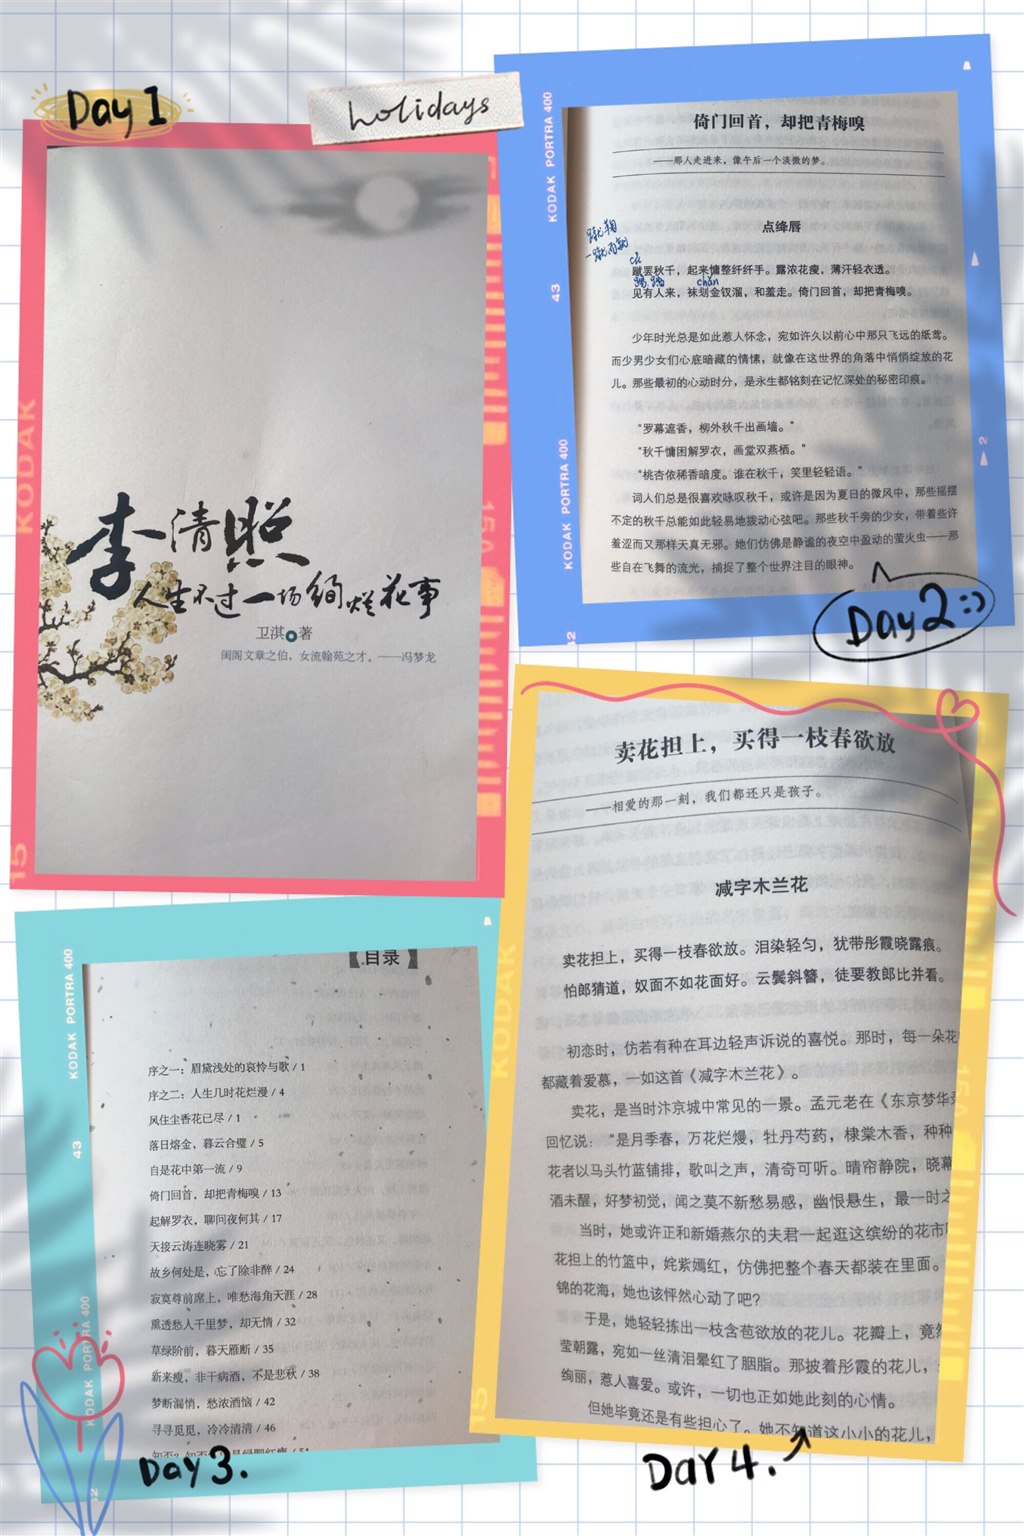 Day 1
holidays
KODAK
15
15A
李清照
人生不过一场绚烂花事
卫淇 著
闺阁文章之伯，女流翰苑之才。——冯梦龙
KODAK PORTRA 400
43
KODAK PORTRA 400
2
倚门回首，却把青梅嗅
——那人走进来，像午后一个淡微的梦。
点绛唇
cù
蹴罢秋千，起来慵整纤纤手。露浓花瘦，薄汗轻衣透。
chǎn
见有人来，袜刬金钗溜，和羞走。倚门回首，却把青梅嗅。
少年时光总是如此惹人怀念，宛如许久以前心中那只飞远的纸鸢。
而少男少女们心底暗藏的情愫，就像在这世界的角落中悄悄绽放的花
儿。那些最初的心动时分，是永生都铭刻在记忆深处的秘密印痕。
“罗幕遮香，柳外秋千出画墙。”
“秋千慵困解罗衣，画堂双燕栖。”
“桃杏依稀香暗度。谁在秋千，笑里轻轻语。”
词人们总是很喜欢咏叹秋千，或许是因为夏日的微风中，那些摇摆
不定的秋千总能如此轻易地拨动心弦吧。那些秋千旁的少女，带着些许
羞涩而又那样天真无邪。她们仿佛是静谧的夜空中盈动的萤火虫——那
些自在飞舞的流光，捕捉了整个世界注目的眼神。
Day2:)
KODAK PORTRA 400
43
KODAK PORTRA 400
【目录】
序之一：眉黛浅处的哀怜与歌 / 1
序之二：人生几时花烂漫 / 4
风住尘香花已尽 / 1
落日熔金，暮云合璧 / 5
自是花中第一流 / 9
倚门回首，却把青梅嗅 / 13
起解罗衣，聊问夜何其 / 17
天接云涛连晓雾 / 21
故乡何处是，忘了除非醉 / 24
寂寞尊前席上，唯愁海角天涯 / 28
熏透愁人千里梦，却无情 / 32
草绿阶前，暮天雁断 / 35
新来瘦，非干病酒，不是悲秋 / 38
梦断漏悄，愁浓酒恼 / 42
寻寻觅觅，冷冷清清 / 46
Day 3.
卖花担上，买得一枝春欲放
——相爱的那一刻，我们都还只是孩子。
减字木兰花
卖花担上，买得一枝春欲放。泪染轻匀，犹带彤霞晓露痕。
怕郎猜道，奴面不如花面好。云鬓斜簪，徒要教郎比并看。
初恋时，仿若有种在耳边轻声诉说的喜悦。那时，每一朵花
都藏着爱慕，一如这首《减字木兰花》。
卖花，是当时汴京城中常见的一景。孟元老在《东京梦华
回忆说：“是月季春，万花烂熳，牡丹芍药，棣棠木香，种种
花者以马头竹蓝铺排，歌叫之声，清奇可听。晴帘静院，晓幕
酒未醒，好梦初觉，闻之莫不新愁易感，幽恨悬生，最一时之
当时，她或许正和新婚燕尔的夫君一起逛这缤纷的花市
花担上的竹篮中，姹紫嫣红，仿佛把整个春天都装在里面。
锦的花海，她也该怦然心动了吧？
于是，她轻轻拣出一枝含苞欲放的花儿。花瓣上，竟
莹朝露，宛如一丝清泪晕红了胭脂。那披着彤霞的花儿，
绚丽，惹人喜爱。或许，一切也正如她此刻的心情。
但她毕竟还是有些担心了。她不知道这小小的花儿，
Day 4.